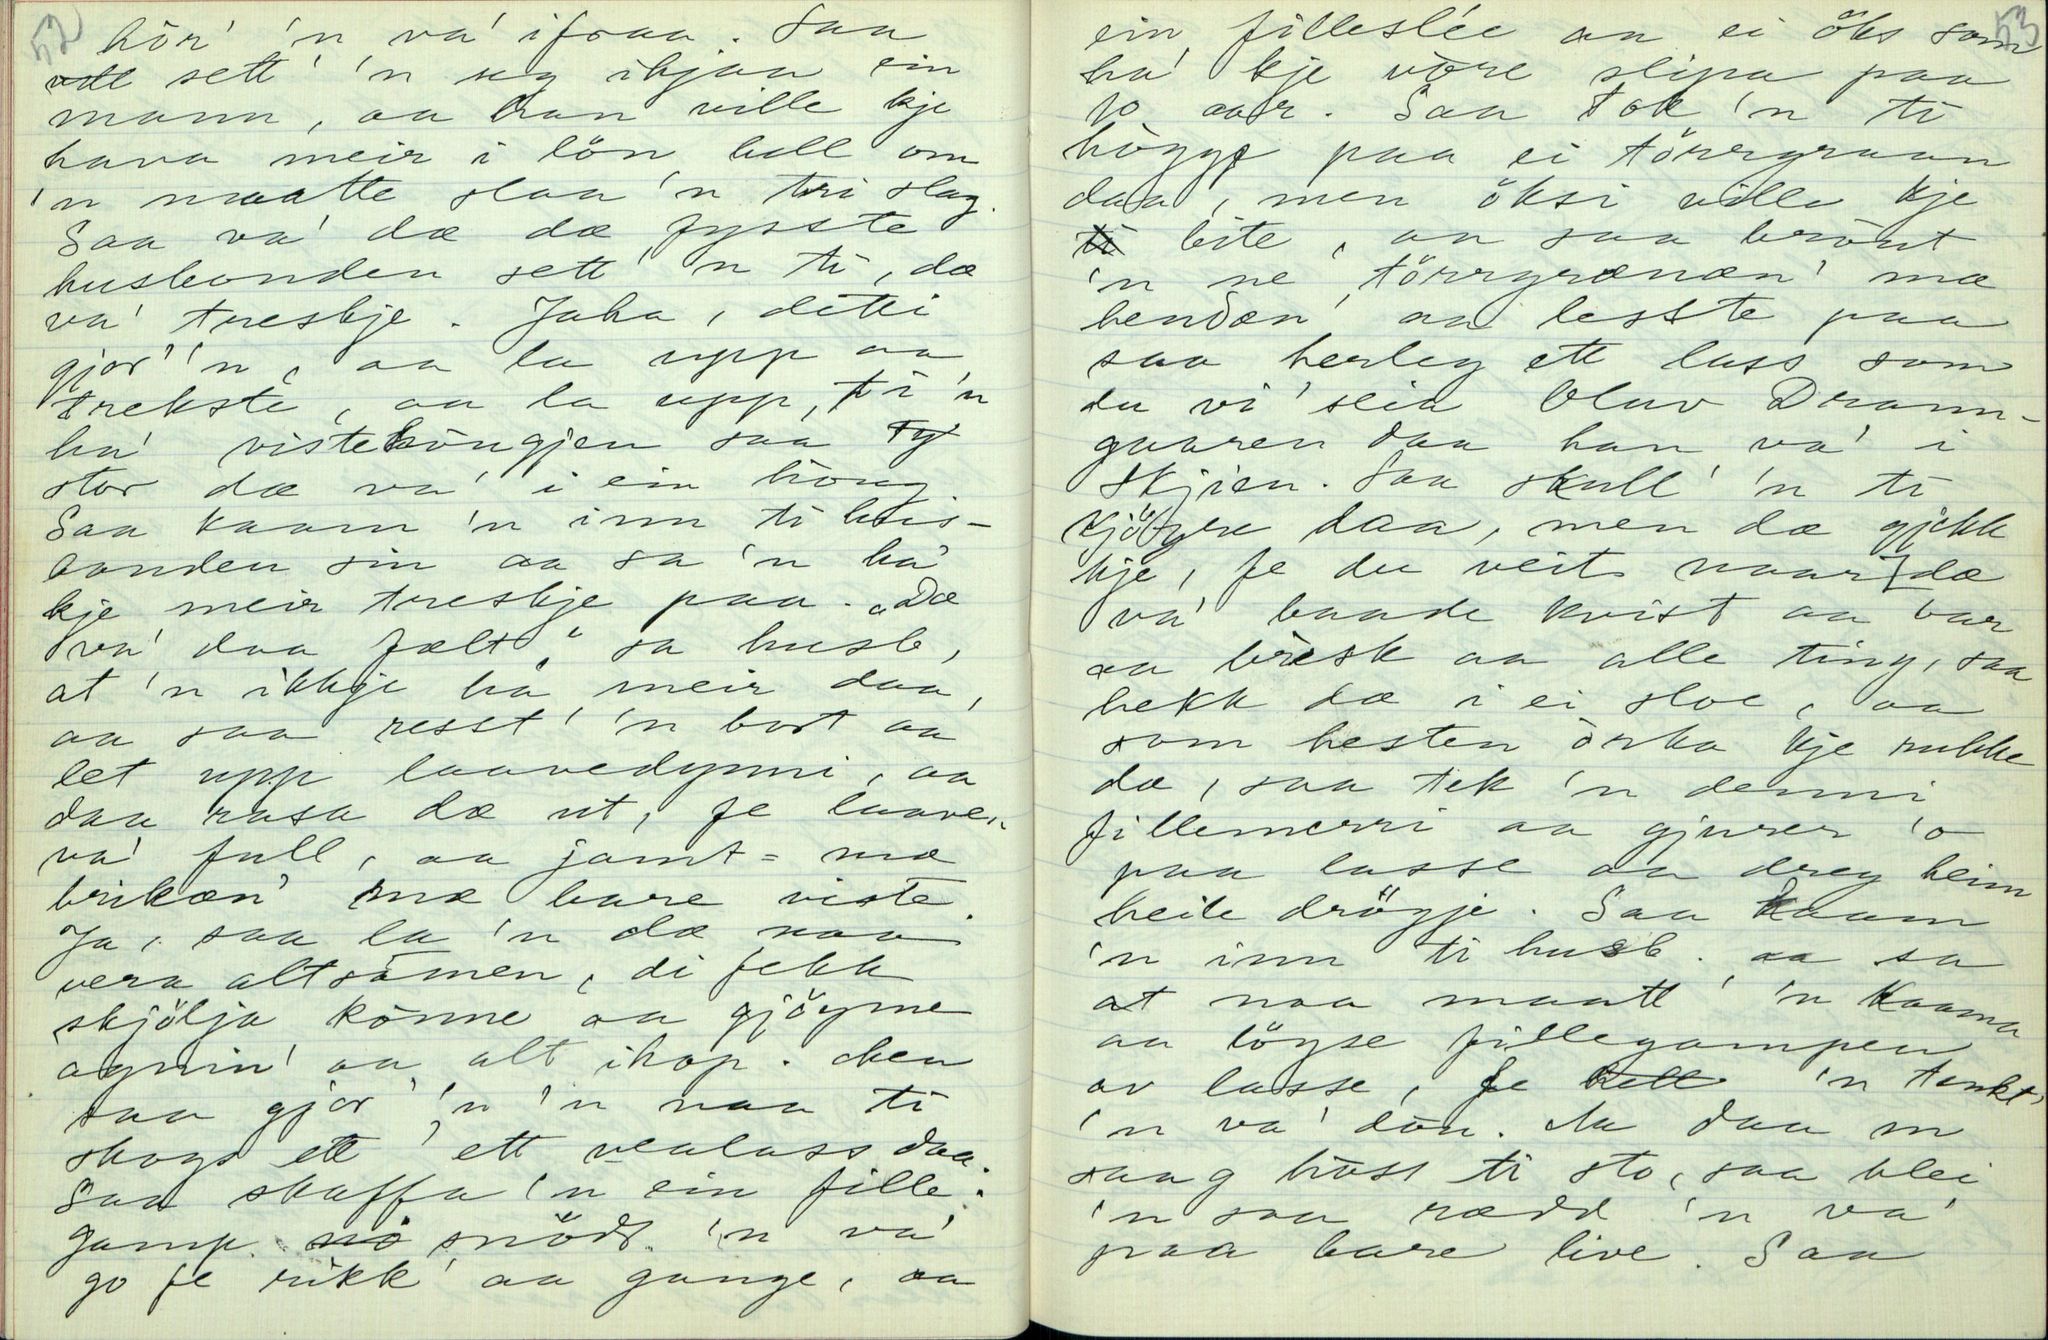 52
hör' 'n va' ifraa. Saa
sett' 'n seg ihjaa ein
mann, aa han ville kje
hava meir i lön hell om
'n maatte slaa 'n tri slag.
Saa va' dæ dæ fysste
husbonden sett' 'n ti, dæ
va' treskje. Jaha, detti
gjor' 'n, aa la upp aa
trekste, aa la upp, ti 'n
ha' vistehöngjen saa
stor dæ va' i ein höng.
Saa kaam 'n inn ti hus-
bonden sin aa sa 'n ha'
kje meir treskje paa. „Dæ
va' daa fælt" sa husb,
at 'n ikkje ha' meir daa,
aa saa resst' 'n bort aa
let upp laavedynni, aa
daa rasa dæ ut, fe laaven
va' full, aa jamt-mæ
brikæn' mæ bare viste.
Ja, saa la 'n dæ naa
vera altsömen, di fekk
skjölja könne aa gjöyme
agnin' aa alt ihop. Men
saa gjor' 'n 'n naa ti
skogs ett' ett vealass daa.
Saa skaffa 'n ein fille-
gamp. snödt 'n va'
go fe rikk' aa gange, aa
53
ein filleslée aa ei öks som
ha' kje vöre slipa paa
10 aar. Saa tok 'n ti
högge paa ei törrgraan
daa, men öksi ville kje
bite, aa saa bröut
'n ne' törrgrænæn' mæ
hendæn' aa lesste paa
saa herleg ett lass som
du vi' seia Oluv Dramm-
gaaren daa han va' i
Skjien. Saa skull' 'n ti
kjöyre daa, men dæ gjekk
kje, fe du veit naar dæ
va' baade kvist aa bar
aa bresk aa alle ting, saa
hekk dæ i ei sloe, aa
som hesten örka kje rukke
dæ, saa tek 'n denni
fillemerri aa gjurer 'o
paa lasse aa dreg heim
heile drögje. Saa kaam
'n inn ti husb. aa sa
at naa maatt' 'n kaama
aa löyse fillegampen
av lasse, fe 'n tenkt'
'n va' döu. Na daa 'n
saag höss ti sto, saa blei
'n saa rædd 'n va'
paa bare live. Saa